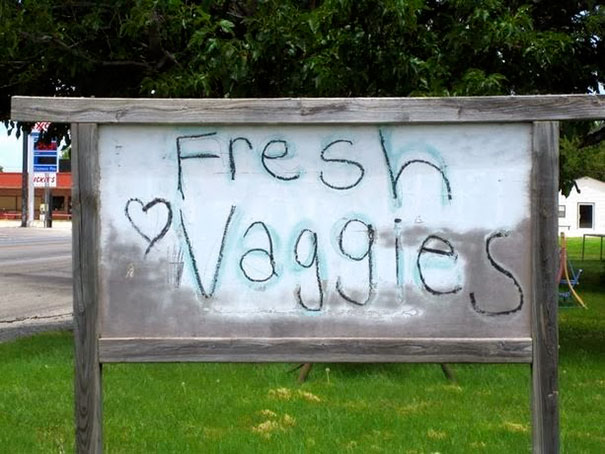 Fresh
Vaggies